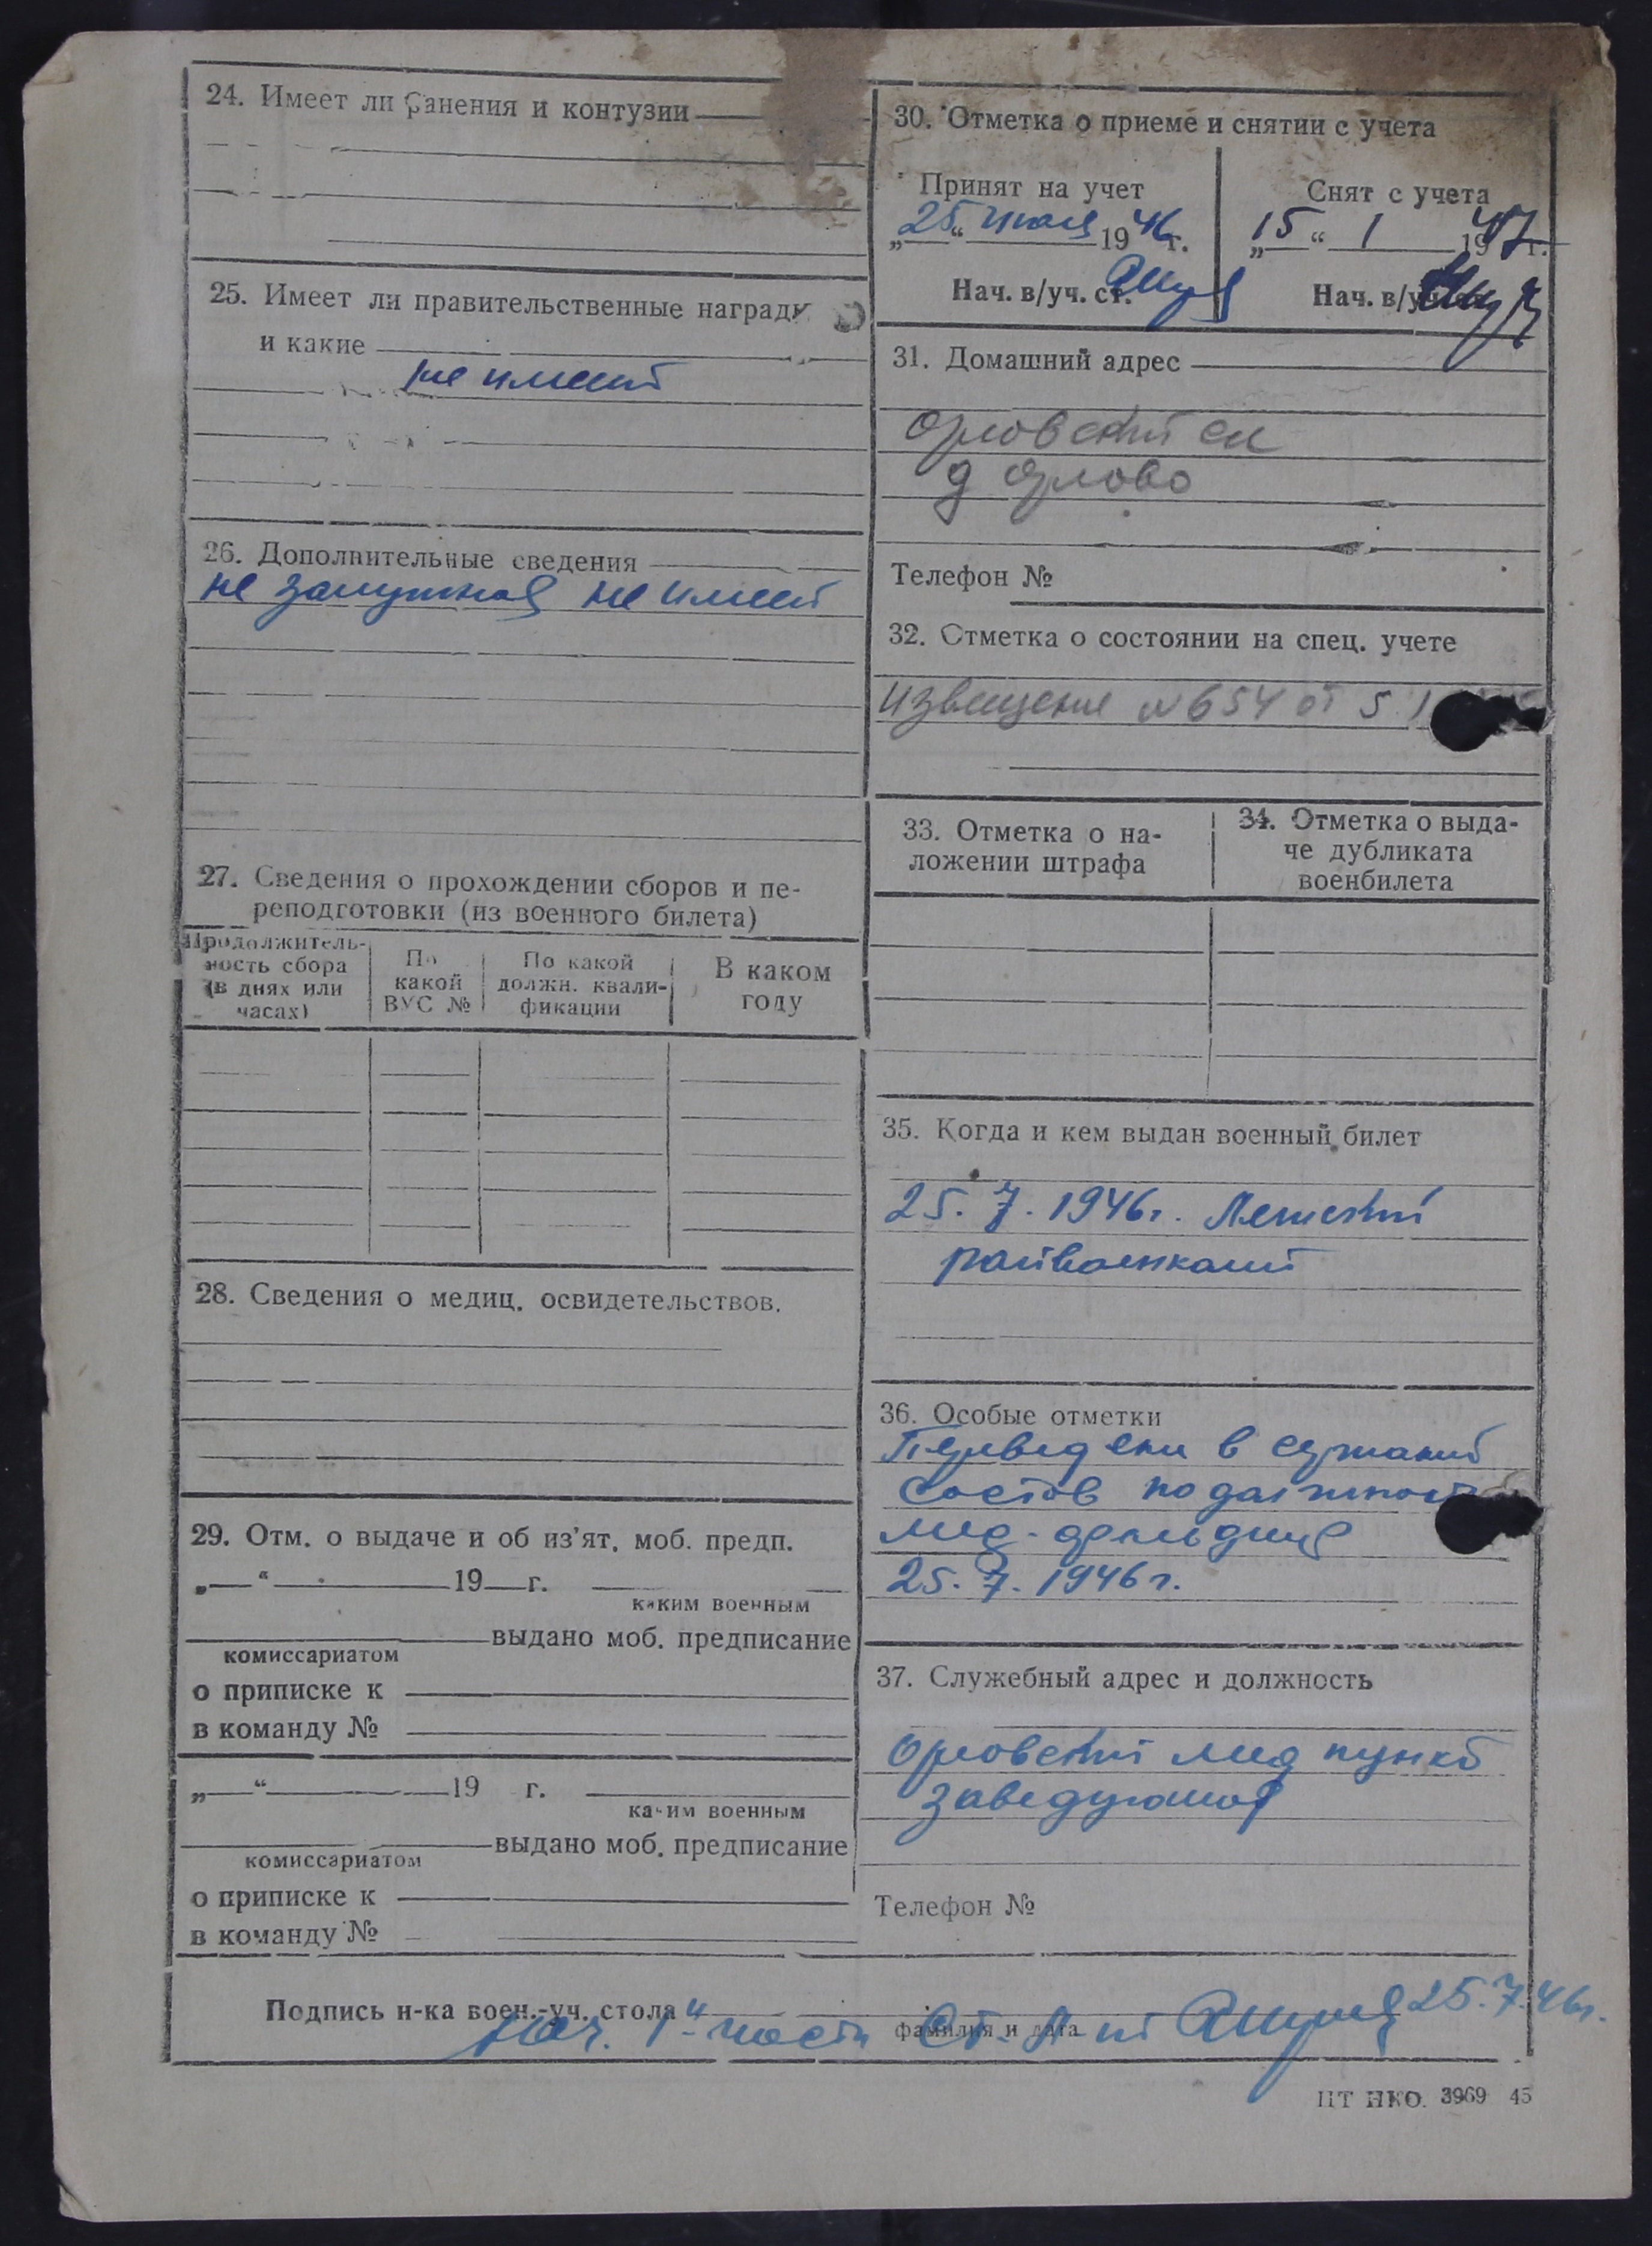 24. Имеет ли ранения и контузии
25. Имеет ли правительственные награды
и какие
не имеет
26. Дополнительные сведения
не замужняя не имеет
27. Сведения о прохождении сборов и пе-
реподготовки (из военного билета)
Продолжитель-
ность сбора
(в днях или
часах)
По
какой
ВУС №
По какой
должн. квали-
фикации
В каком
году
28. Сведения о медиц. освидетельствов.
29. Отм. о выдаче и об из'ят. моб. предп.
„ “ 19 г.
каким военным
выдано моб. предписание
комиссариатом
о приписке к
в команду №
„ “ 19 г.
каким военным
выдано моб. предписание
комиссариатом
о приписке к
в команду №
30. Отметка о приеме и снятии с учета
Принят на учет
„25“ июля 1946 г.
Нач. в/уч. ст.
Снят с учета
„15“ 1 1947 г.
Нач. в/уч.
31. Домашний адрес
Орловский с/с
д Орлово
Телефон №
32. Отметка о состоянии на спец. учете
извещение №654 от 5
33. Отметка о на-
ложении штрафа
34. Отметка о выда-
че дубликата
военбилета
35. Когда и кем выдан военный билет
25. 7. 1946г.
райвоенкомат
36. Особые отметки
Переведена в
состав по должности
мед-
25. 7. 1946г.
37. Служебный адрес и должность
Орловский мед пункт
заведующая
Телефон №
Подпись н-ка воен.-уч. стола
нач. 1й части ст. л-нт 25.7.46г.
фамилия и дата
ЦТ НКО. 3969 45